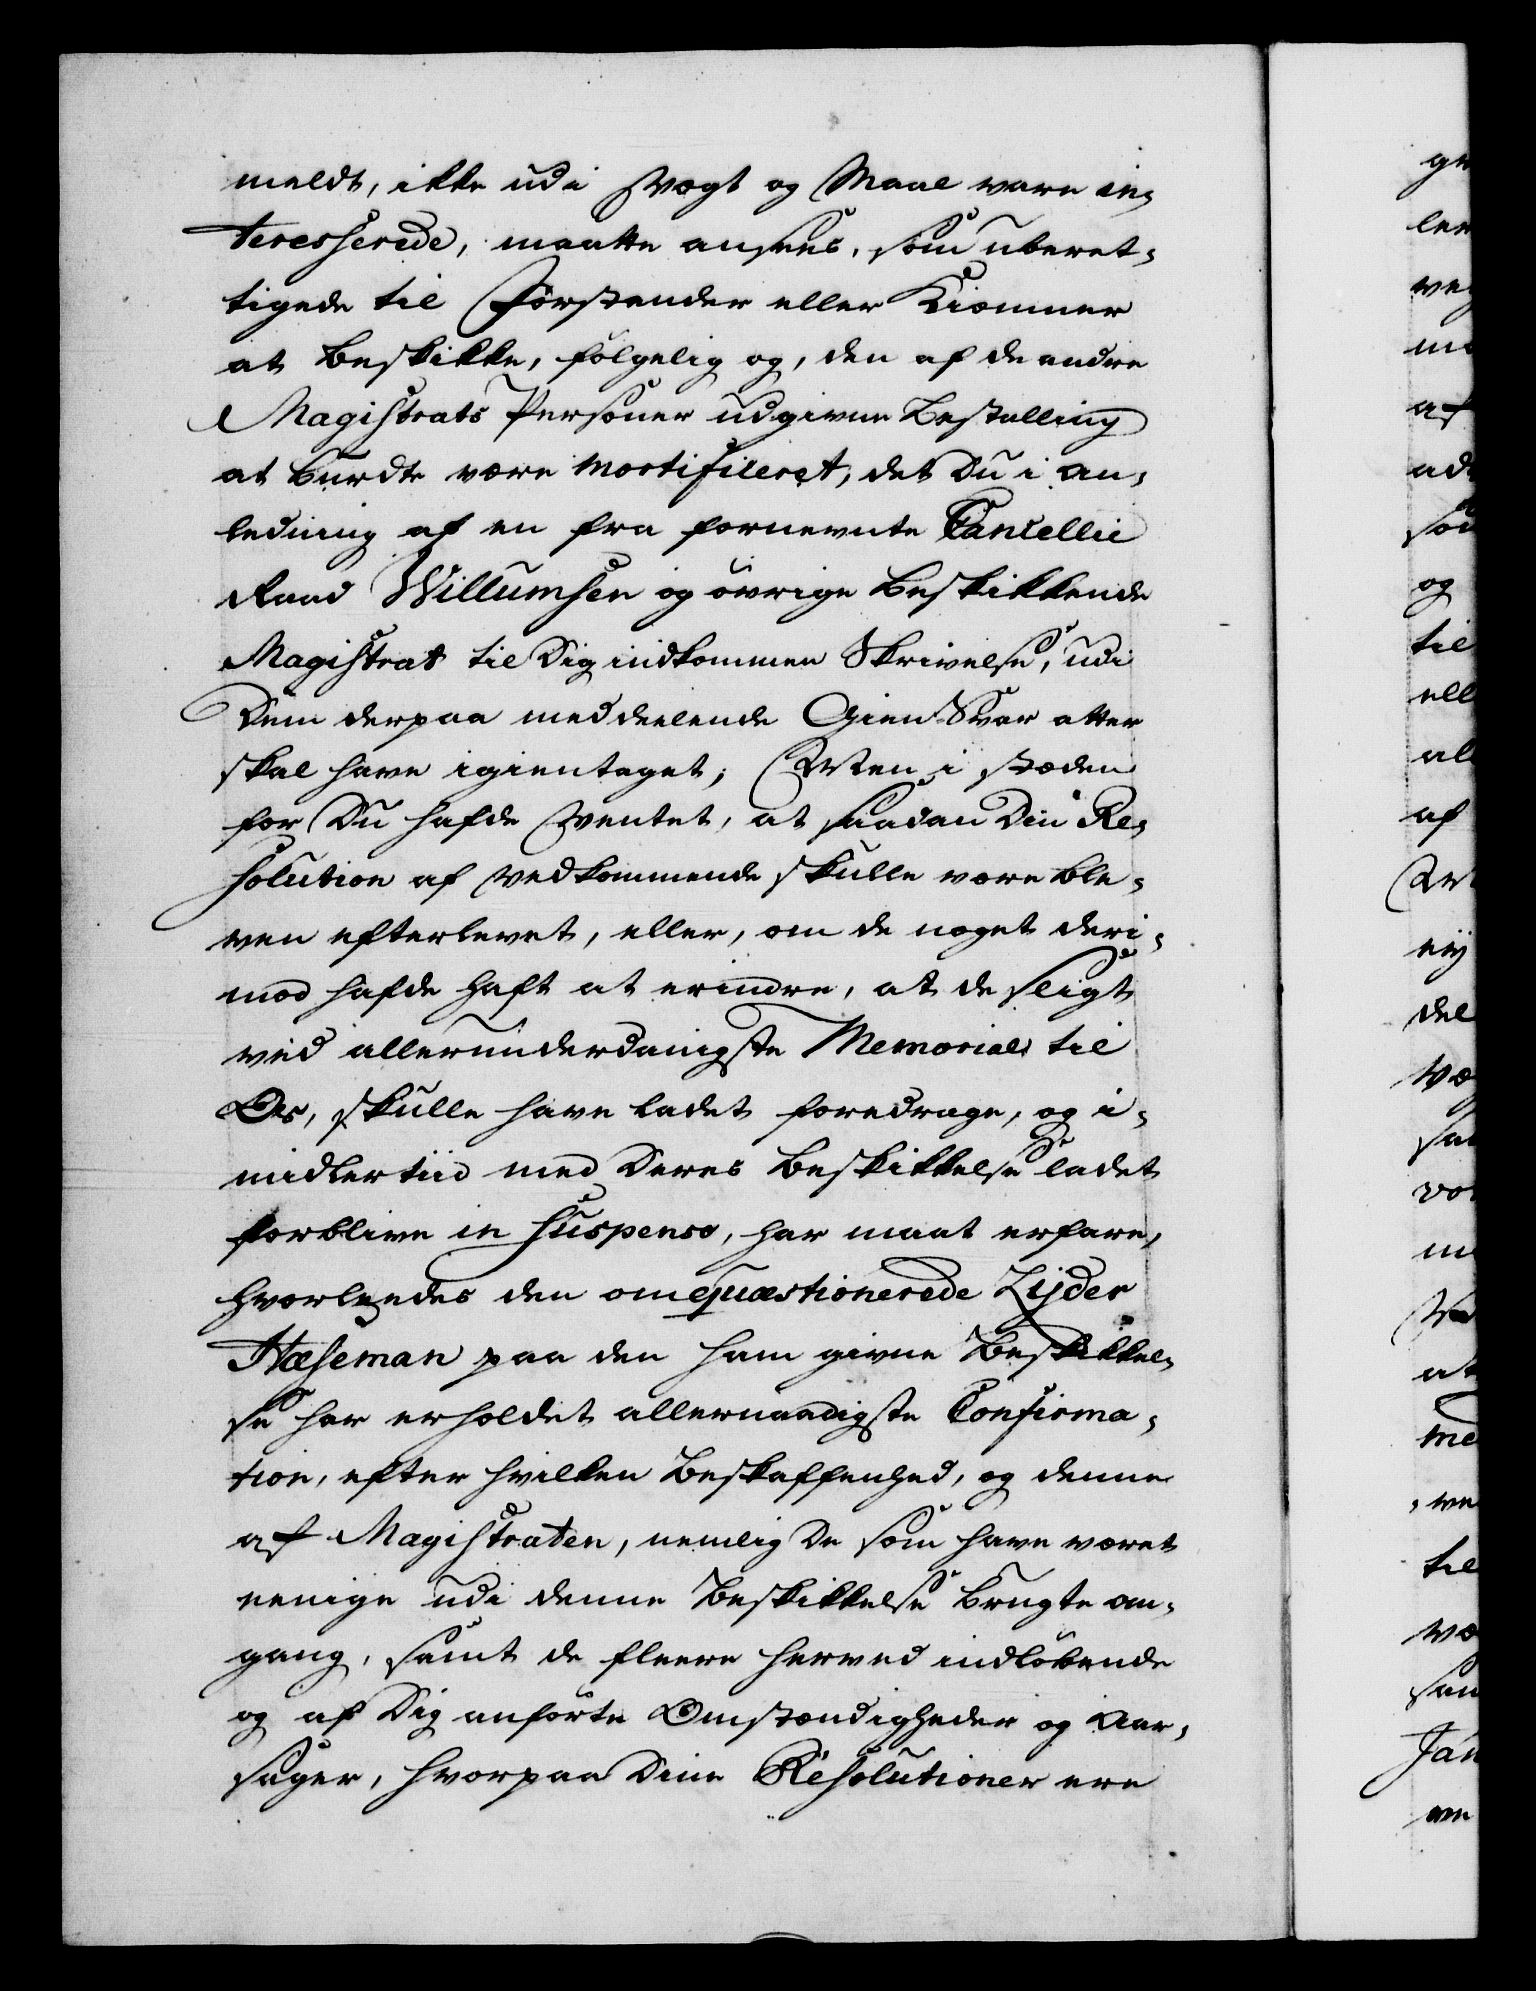 meldt, ikke udi Vægt og Maal vare in-
teresserede, maatte ansees, som uberet-
tigede til Forstander eller Kiæmner
at beskikke, følgelig og, den af de andre
Magistrats Personer udgivne Bestalling
at burdte være mortificeret, det Du i an-
ledning af en fra fornevnte Cancellie
Raad Willumsen og øvrige beskikkende
Magistrat til Dig indkommen Skrivelse, udi
Dem derpaa meddeelende Gien-Svar atter
skal have igientaget; Men i stæden
for Du hafde Ventet, at saadan Din Re-
solution af Vedkommende skulle være ble-
ven efterlevet, eller, om de noget deri-
mod hafde haft at erindre, at de sligt
ved allerunderdanigste Memorial til
Os, skulle have ladet foredrage, og i-
midlertiid med Deres Beskikkelse ladet
forblive in Suspenso, har maat erfare,
hvorledes den omqvæstionerede Zijder
Hæseman paa den ham givne Beskikkel-
se har erholdet allernaadigste Confirma-
tion, efter hvilken Beskaffenhed, og denne
af Magistraten, nemlig De som have været
eenige udi denne Beskikkelse brugte om-
gang, samt de fleere herved indløbende
og af Dig anførte Omstændigheder og Aar-
sager, hvorpaa Dine Resolutioner ere